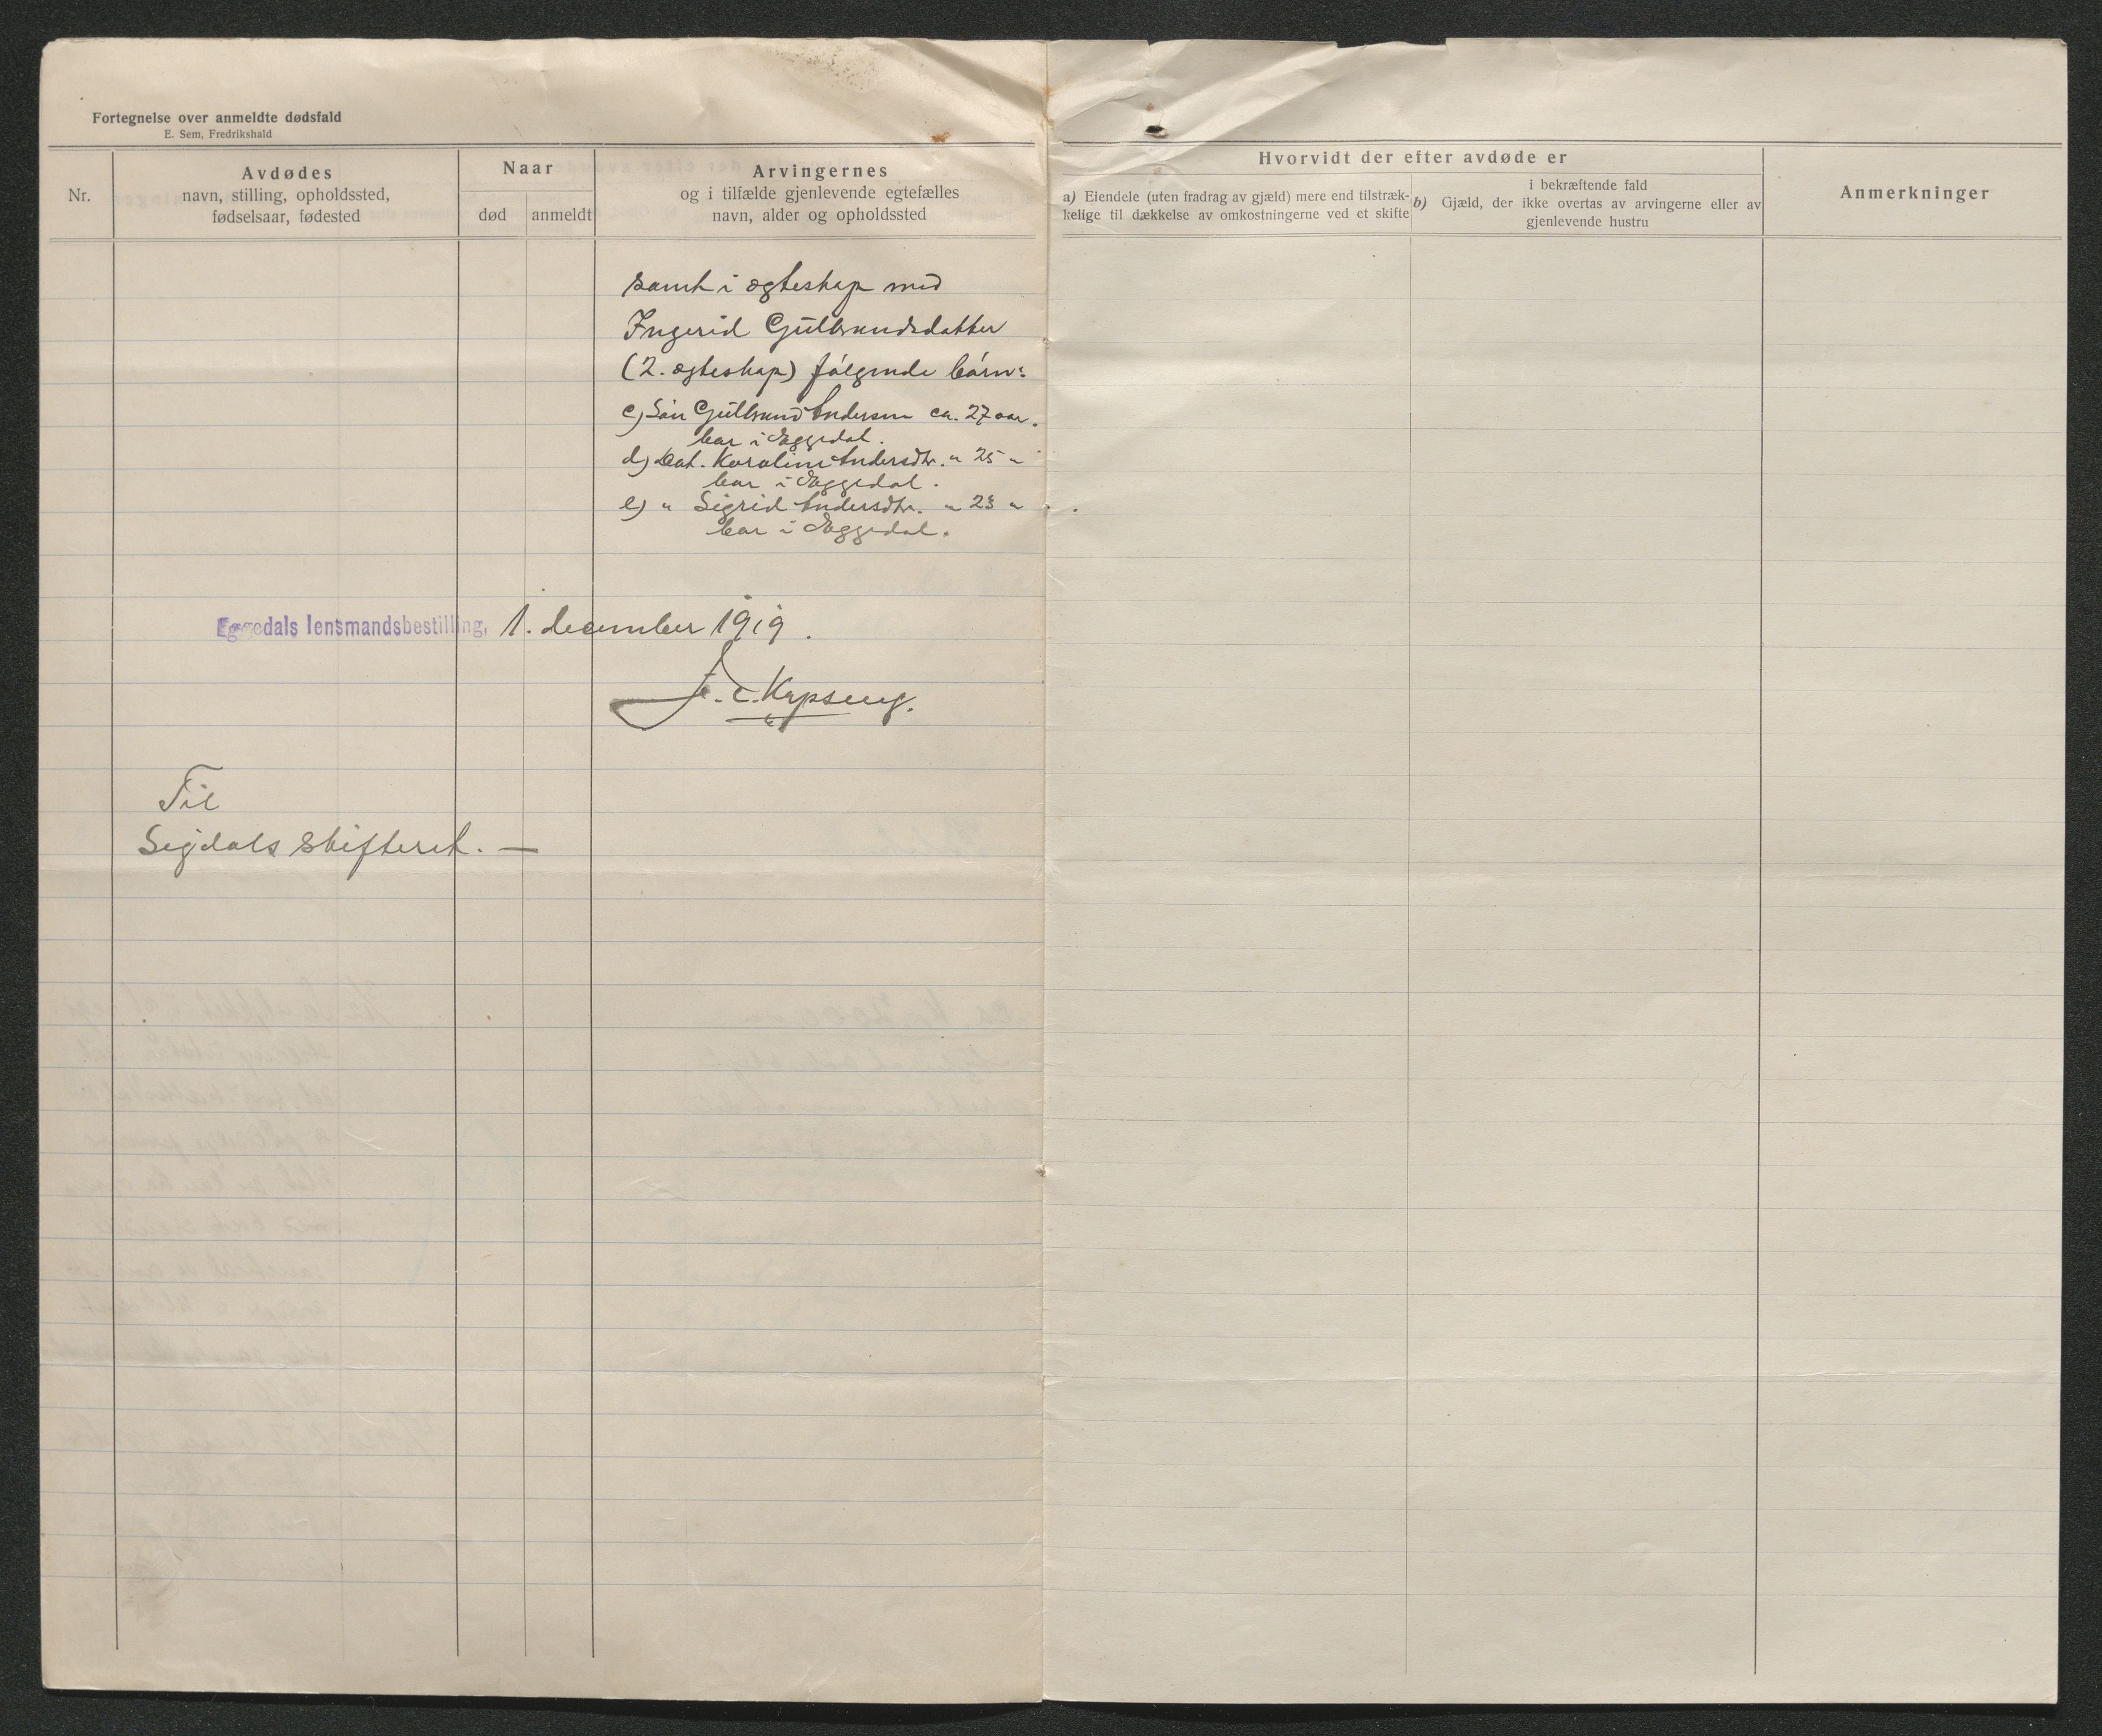 Fortegnelse over anmeldte dødsfald
E. Sem, Fredrikshald
Nr.
Avdødes
navn, stilling, opholdssted,
fødselsaar, fødested
Naar
død
anmeldt
Arvingernes
og i tilfælde gjenlevende egtefælles
navn, alder og opholdssted
Hvorvidt der efter avdøde er
a) Eiendele (uten fradrag av gjæld) mere end tilstræk-
kelige til dækkelse av omkostningerne ved et skifte
i bekræftende fald
b) Gjæld, der ikke overtas av arvingerne eller av
gjenlevende hustru
Anmerkninger
samt i ægteskap med
Ingerid Gulbrandsdatter
(2. ægteskap) følgende børn:
c) Søn Gulbrand Andersen ca. 27 aar.
bor i Eggedal.
d) Dat. Karoline Andersdtr. " 25 "
bor i Eggedal.
e) " Sigrid Andersdtr. " 23 "
bor i Eggedal.
Eggedals lensmandsbestilling, 1. december 1919.
Til
Sigdals skifteret. —